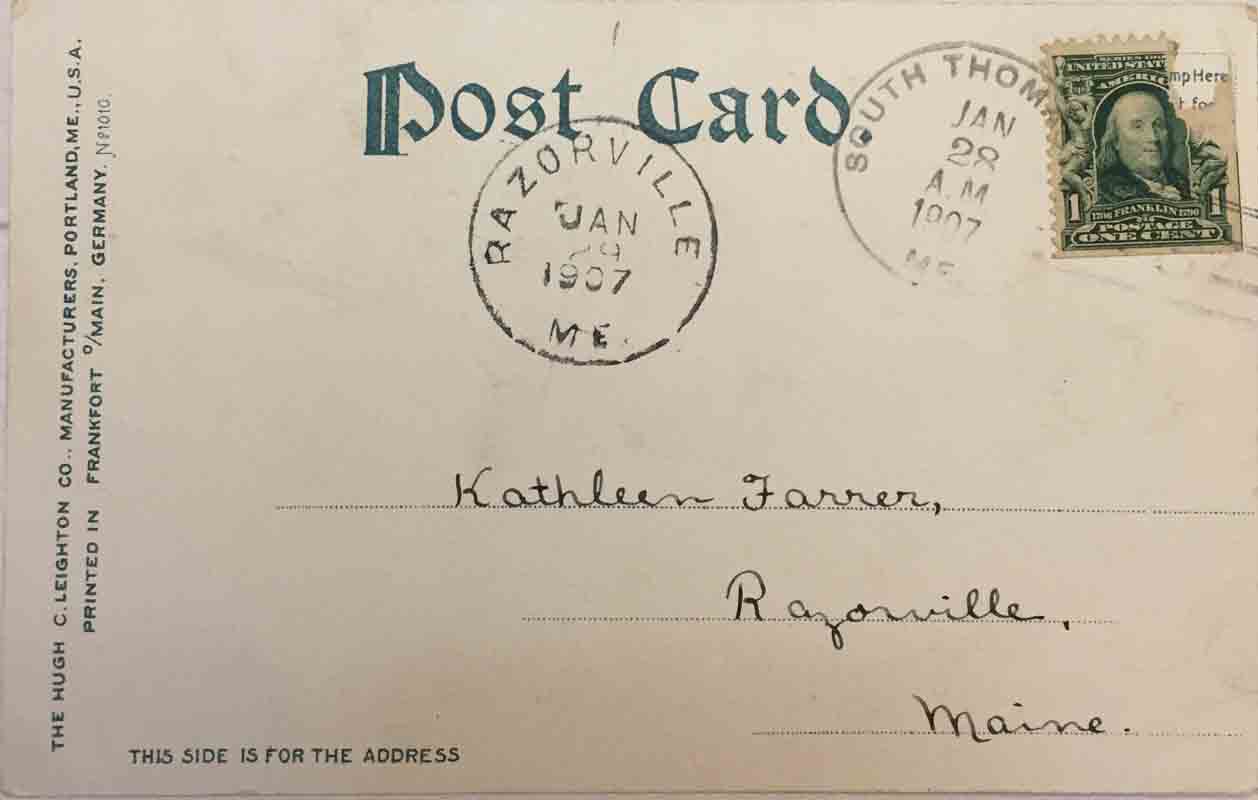 Post Card
THE HUGH C. LEIGHTON CO., MANUFACTURERS, PORTLAND, ME., U.S.A.
PRINTED IN FRANKFORT o/MAIN, GERMANY. No 1010.
RAZORVILLE
JAN
29
1907
ME.
SOUTH THOM
JAN
28
A.M
1907
ME
mp Here
UNITED STAT
AMERIC
1 1706 FRANKLIN 1790 1
POSTAGE
ONE CENT
Kathleen Farrer,
Razorville,
Maine.
THIS SIDE IS FOR THE ADDRESS